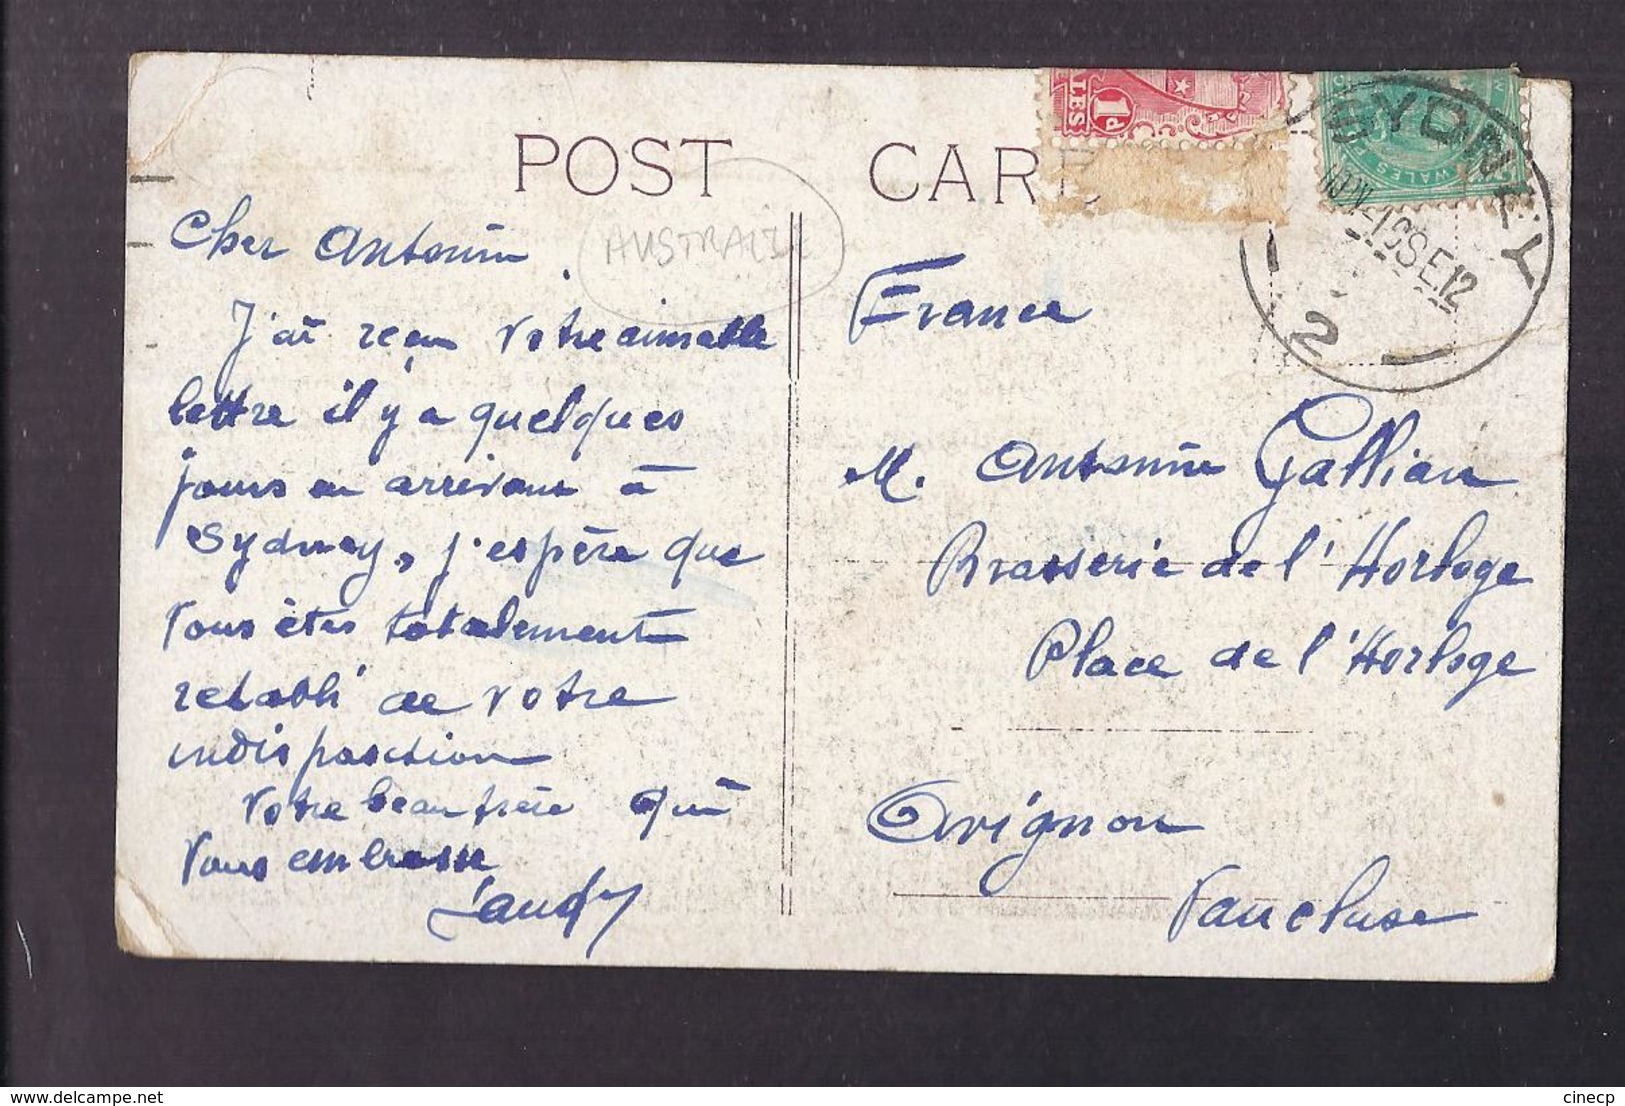 POST CARD
AUSTRALIE
Cher Antonin
J'ai reçu votre aimable
lettre il y a quelques
jours en arrivant à
Sydney, j'espère que
vous êtes totalement
retabli de votre
indisposition
Votre beau frère qui
vous embrasse
France
M. Antonin Gallian
Brasserie de l'Horloge
Place de l'Horloge
Avignon
Vaucluse
ALES
1d
WALES
SYDNEY
1 SE 12
2
delcampe.net
cinecp